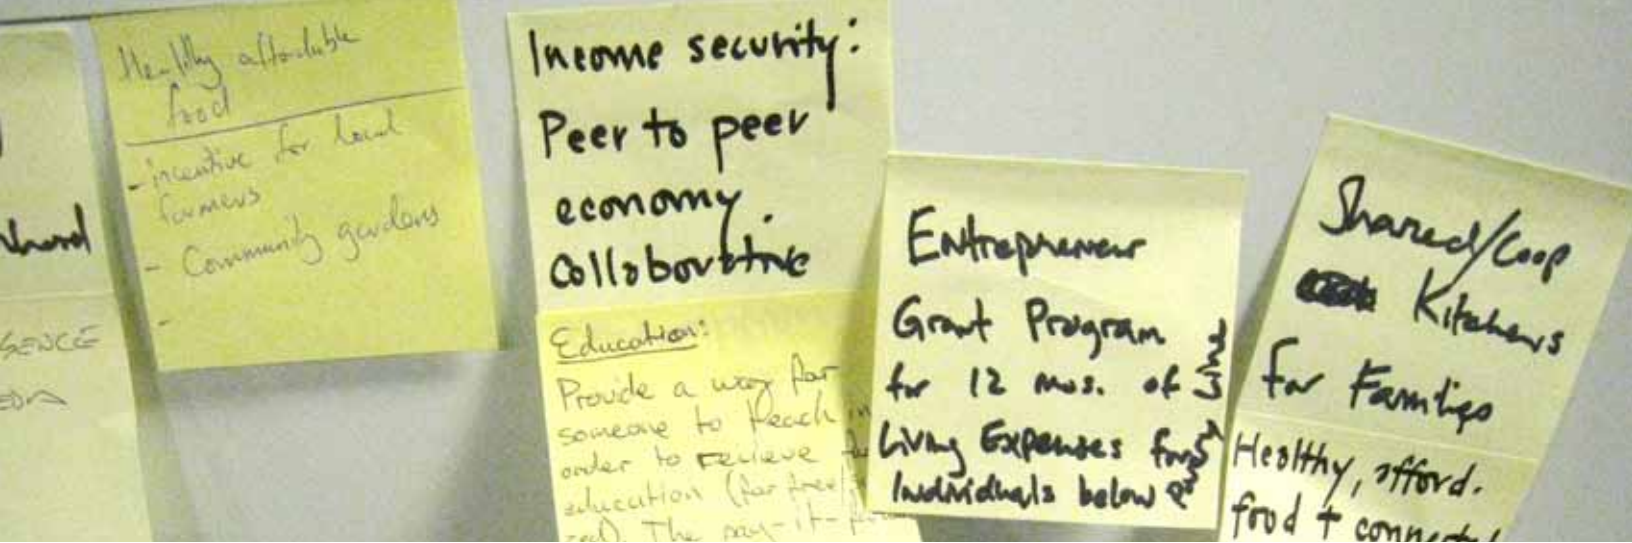 Healthy affordable
food
- incentive for local
farmers
- Community gardens
-
Income security:
Peer to peer
economy.
Collaborative
Education:
Provide a way for
someone to teach in
order to recieve
education (for free/
The pay-it-
Entrepreneur
Grant Program
for 12 mos. of
Living Expenses for
Individuals below
Poverty Line
Shared/Coop
Kitchens
for Families
Healthy, afford.
food + connected
GENCE
EDA